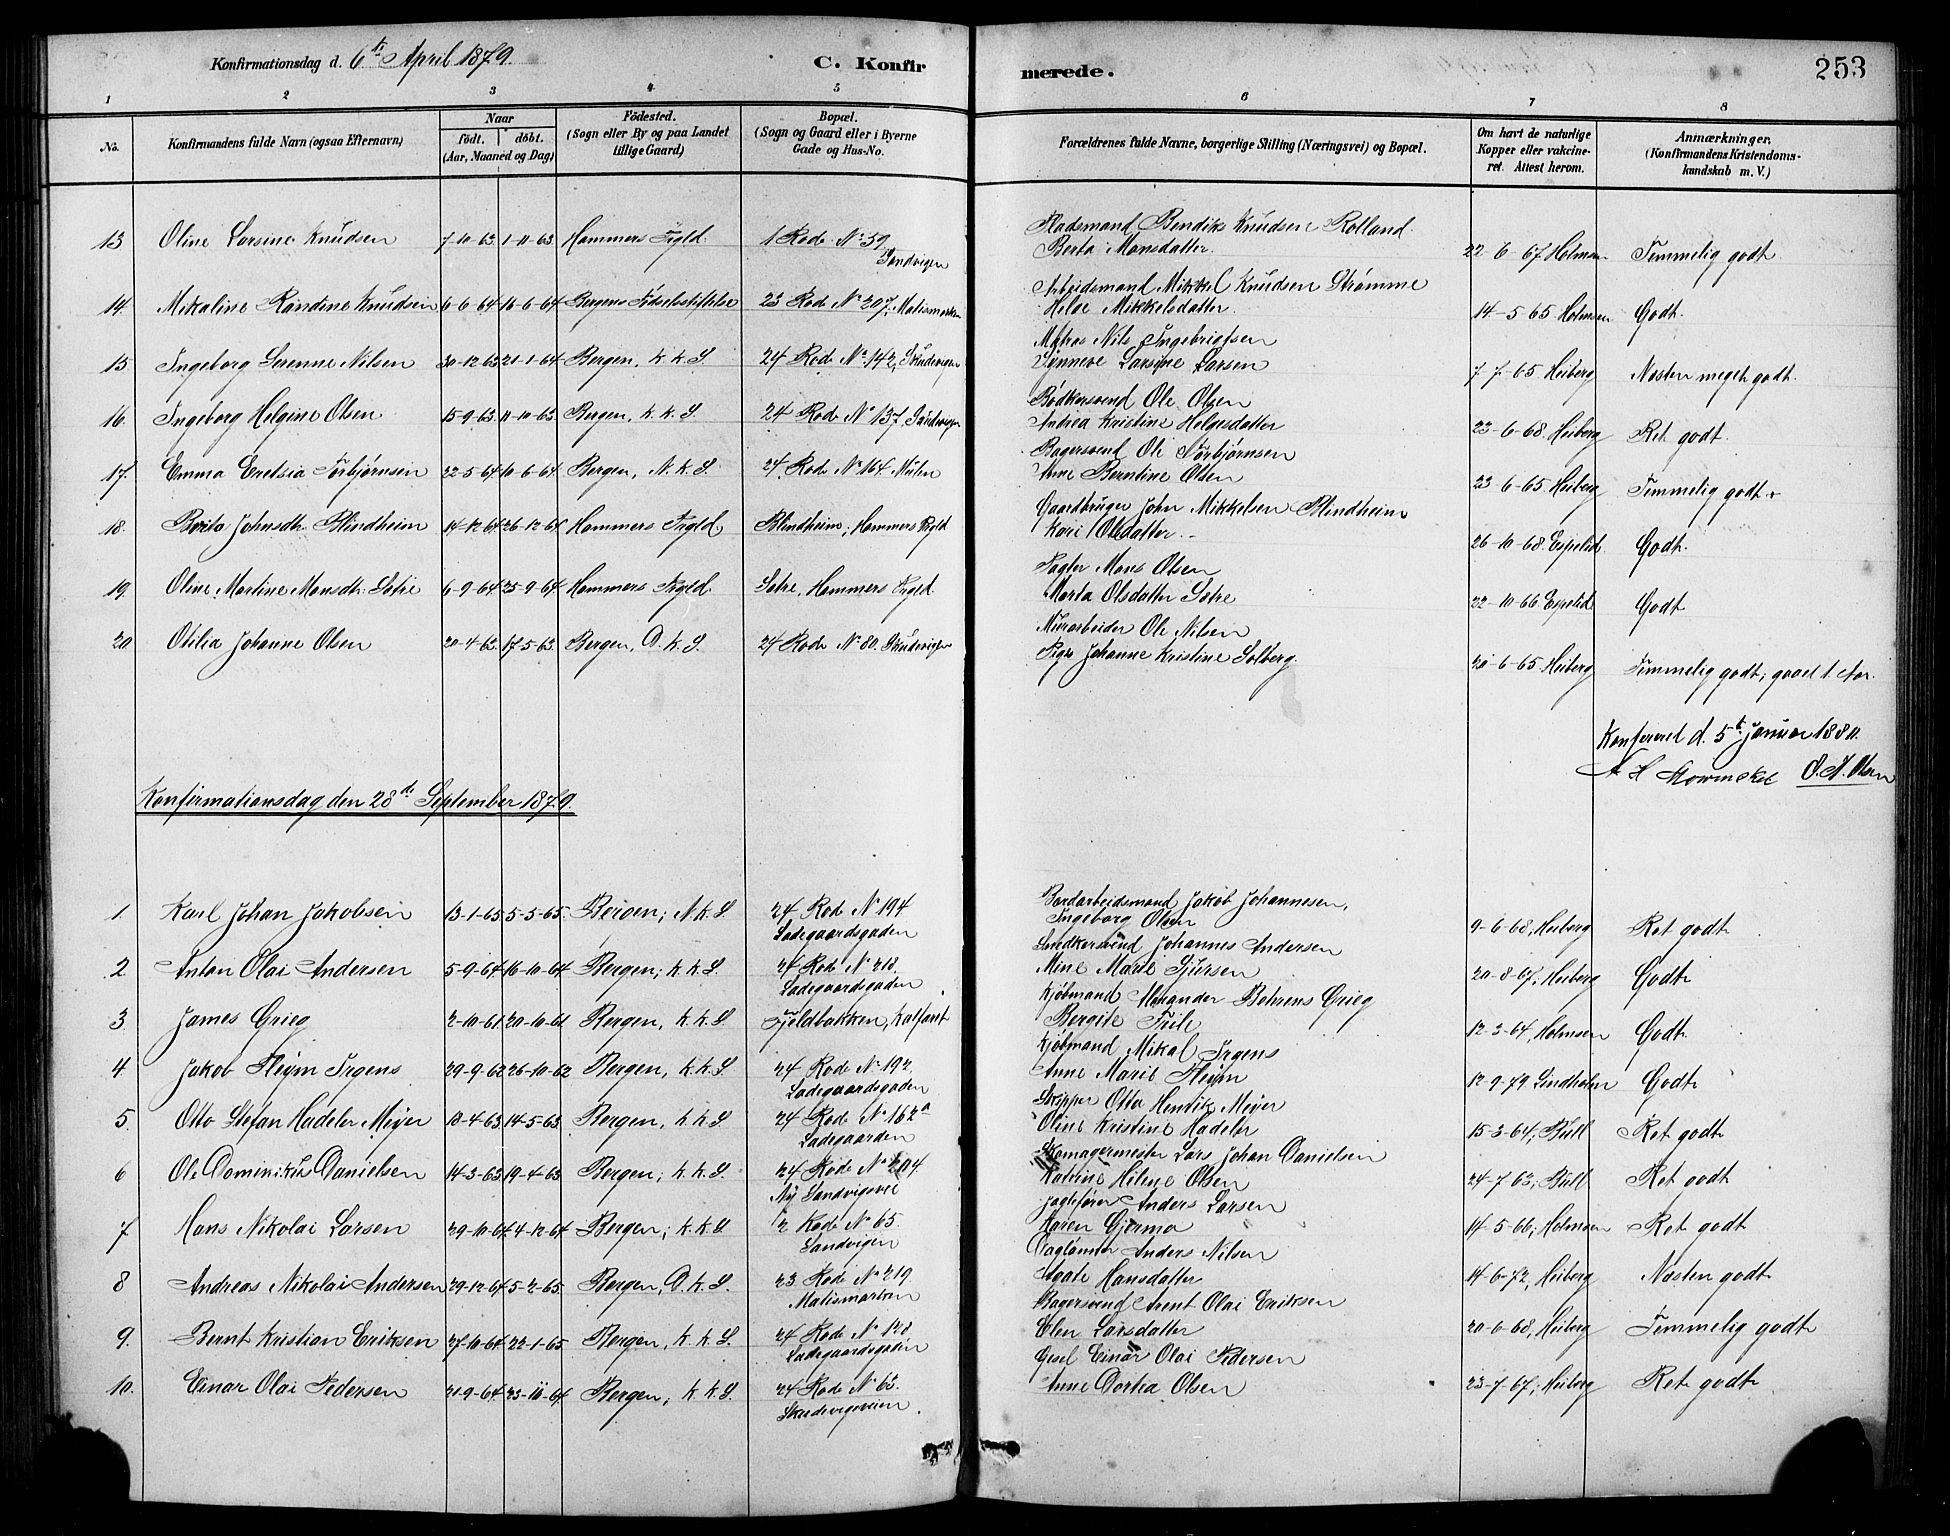 Konfirmationsdag d. 6te April 1879.
C. Konfirmerede.
253
1 2 3 4 5 6 7 8
No.
Konfirmandens fulde Navn (ogsaa Efternavn)
Naar født. døbt. (Aar, Maaned og Dag)
Födested. (Sogn eller By og paa Landet tillige Gaard)
Bopæl. (Sogn og Gaard eller i Byerne Gade og Hus-No.
Forældrenes fulde Navne, borgerlige Stilling (Næringsvei) og Bopæl.
Om havt de naturlige Kopper eller vakcineret. Attest herom.
Anmærkninger. (Konfirmandens Kristendomskundskab m.V.)
13 Oline Larsine Knudsen 7-10-63 1-11-63 Hammers Prgld. 1 Rode No 59 Sandvigen Bendiks Knudsen Rolland Berta Monsdatter 22-6-67 Holmsen Temmelig godt.
14. Mikaline Randine Knudsen 6-6-64 16-6-64 Bergens Fødselsstiftelse 23 Rode No 207, Arbeidsmand Mikkel Knudsen Strømme Helge Mikkelsdatter. 14-5-65 Holmsen Godt.
15. Ingeborg Serenne Nilsen 30-12-63 21-1-64 Bergen, K.K.S. 24 Rod No 142, Matros Nils Ingebrigtsen Synneve Larsine Larsen 7-7-65 Heiberg Næsten meget godt.
16. Ingeborg Helgine Olsen 15-9-63 11-10-63 Bergen, K.K.S. 24 Rode No 137, Sandvigen Bødkersvend Ole Olsen Andrea Kristine Helgesdatter 23-6-68 Heiberg Ret godt.
17. Emma Torbjørnsen 22-5-64 10-6-64 Bergen, N.K.S. 24. Rode No 164 Mulen Bagersvend Ole Torbjørnsen Anne Berntine Olsen 23-6-65 Heiberg Temmelig godt.
18. Brita Johnsdtr. Blindheim 14-12-64 26-12-64 Hammers Prgld. Blindheim, Hammers Prgld Gaardbruger John Mikkelsen Blindheim Kari Olsdatter. 26-10-68 Espelid Godt.
19. Oline Martine Monsdtr. Setre 6-9-64 25-9-64 Hammers Prgld. Setre, Hammers Prgld Mons Olsen Marta Olsdatter Setre 22-10-66 Espelid Godt
20 Otilia Johanne Olsen 20-4-63 17-5-63 Bergen, D.K.S. 24 Rode No 80. Murarbeider Ole Nilsen Pige Johanne Kristine Solberg. 20-6-65 Heiberg Temmelig godt; gaaet 1. Aar.
Konfereret d. 5te Januar 1880.
A H Mowinckel O. A. Olsen
Konfirmationsdag den 28de September 1879.
1. Karl Johan Jakobsen 13-1-65 5-5-65. Bergen, N.K.S. 24 Rod No 194 Ladegaardsgaden Jakob Johannesen, Ingeborg Olsen 9-6-68, Heiberg Ret godt
2 Anton Olai Andersen 5-9-64 16-10-64 Bergen, K.K.S. 24 Rode No 218. Ladegaardsgaden Johannes Andersen Mine Marie Sjursen 20-8-67, Heiberg Godt
3. James Grieg 2-10-61 20-10-61 Bergen, K.K.S. Fjeldbakken, Kalfaret Kjøbmand Alexander Bohrens Grieg Bergite Friele 12-3-64, Holmsen Godt
4 Jakob Fleym Irgens 29-9-62 26-10-62 Bergen, K.K.S. 24 Rode No 192. Ladegaardsgaden Kjøbmand Mikal Irgens Anne Marie Fleym 12-9-79 Lindholm Godt
5. Otto Stefan Hadeler Meyer 18-4-63 14-5-63 Bergen, K.K.S 24 Rode No 162a Ladegaarden Skipper Otto Henrik Meyer Oline Kristine Hadeler 15-3-64; Bull Ret godt
6 Ole Dominikus Danielsen 14-3-63 19-4-63 Bergen; K.K.S. 24 Rode No 204 Ny Sandvigsvei Skomagermester Lars Johan Danielsen Katrine Helene Olsen 24-7-63; Bull Ret godt
7 Hans Nikolai Larsen 29-10-64 4-12-64 Bergen; K.K.S 2 Rode No 65. Sandvigen Jagtefører Anders Larsen Maren Gjerma 14-5-66; Holmsen Ret godt
8 Andreas Nikolai Andersen 29-12-64 5-2-65. Bergen, D.K.S. 23 Rode No 219. Daglønner Anders Nilsen Agate Hansdatter 14-6-72, Heiberg Næsten godt
9. Bernt Kristian Eriksen 27-10-64 22-1-65 Bergen, K.K.S. 24 Rode No 128 Ladegaardsgaden Bagersvend Arent Olai Eriksen Elen Larsdatter 20-6-68, Heiberg Temmelig godt
10. Einar Olai Pedersen 21-9-64 23-10-64 Bergen; K.K.S 24 Rode No 63. Skudevigsveien Gesel Einar Olai Pedersen Anne Dortea Olsen 23-7-67; Heiberg Ret godt